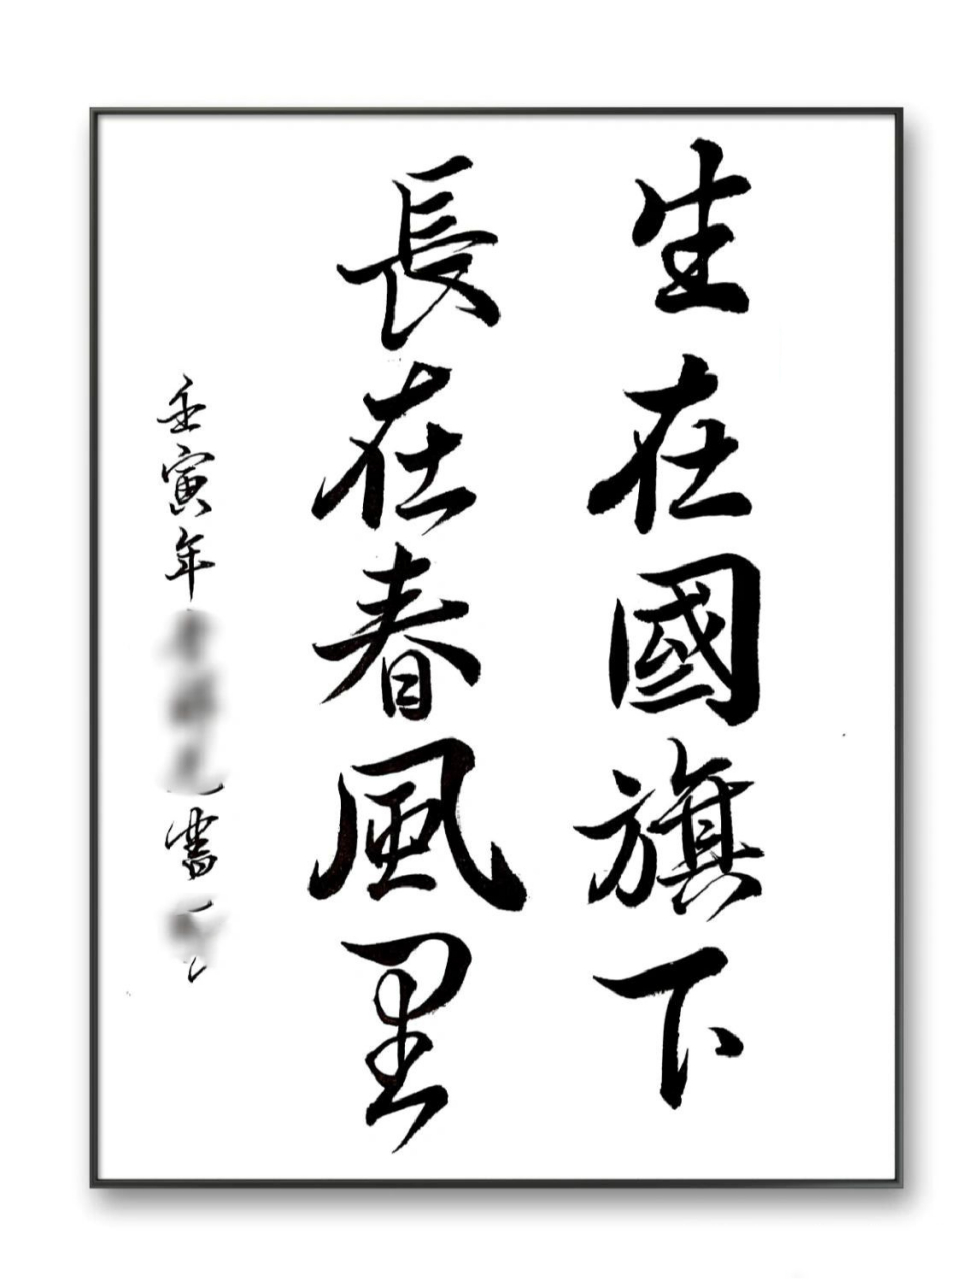 生在國旗下
長在春風里
壬寅年書